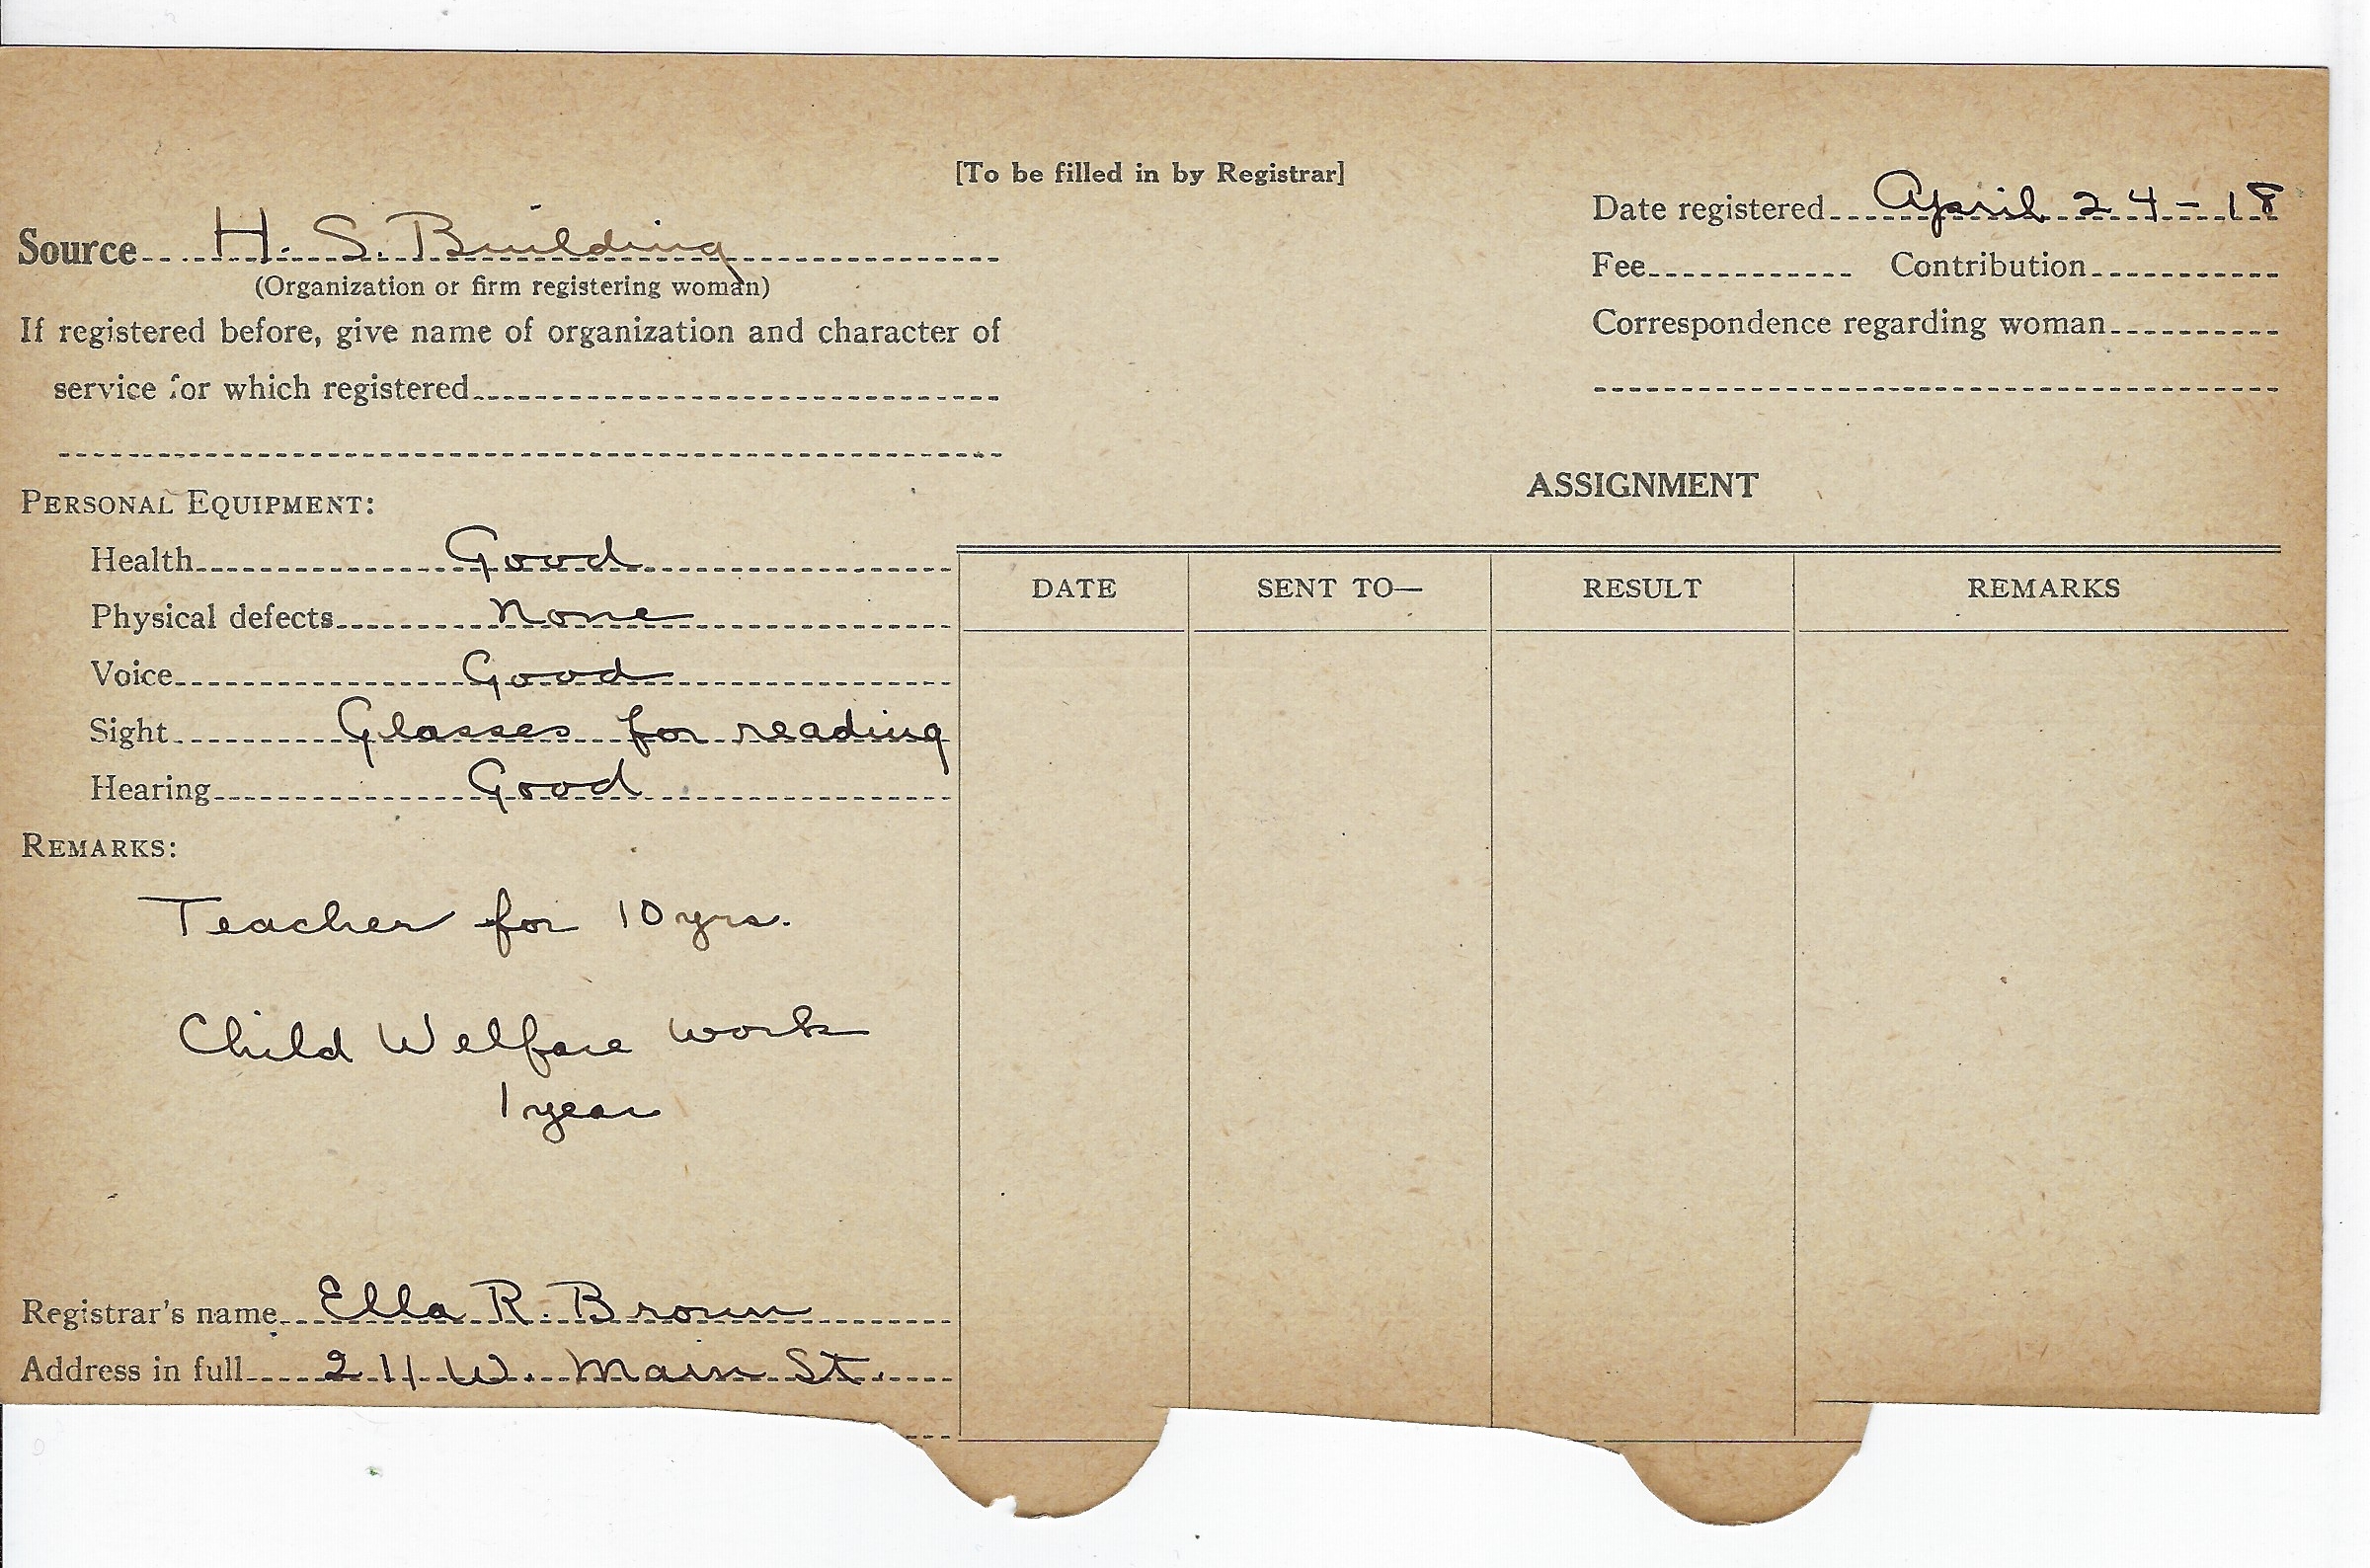 [To be filled in by Registrar]
Source H. S. Building
(Organization or firm registering woman)
If registered before, give name of organization and character of
service for which registered
Date registered April 24-18
Fee Contribution
Correspondence regarding woman
PERSONAL EQUIPMENT:
Health Good
Physical defects None
Voice Good
Sight Glasses for reading
Hearing Good
REMARKS:
Teacher for 10 yrs.
Child Welfare work
1 year
Registrar's name Ella R. Brown
Address in full 211 W. Main St.
ASSIGNMENT
DATE SENT TO— RESULT REMARKS